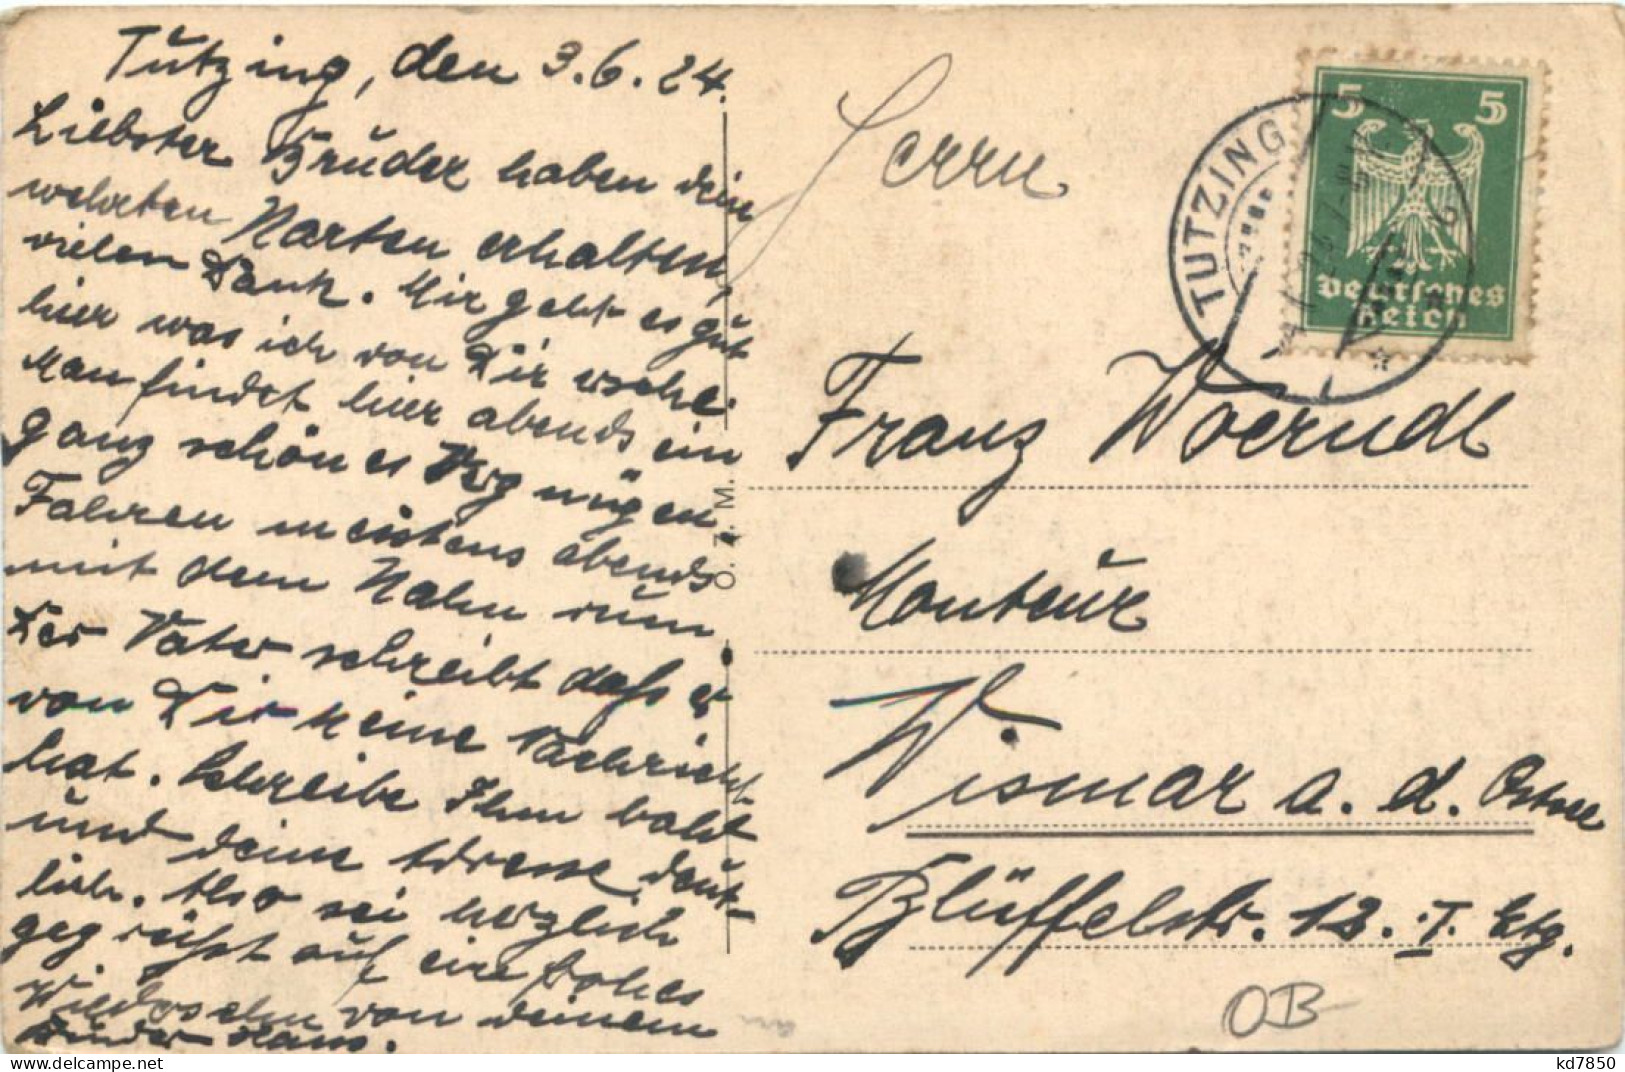 Tützing, den 3.6.24.
Liebster Brüder haben dein
werten Karten erhalten,
vielen Dank. Mir geht es güt
hier was ich von Dir ersehe.
Man findet hier abends ein
ganz schönes Vergnügen.
Fahren meistens abends
mit dem Kahn rüm
Der Vater schreibt dass er
von Dir keine Nachricht
hat. Schreibe Ihm bald
ünd deine Adresse deut-
lich. Also sei herzlich
gegrüsst aüf ein frohes
Wiedersehn von deinem
Brüder Hans.
Herrn
Franz Woerndl
Monteür
Wismar a. d. Ostsee
Blüffelstr. 12. I. Etg.
OB
5 5
Deutsches
Reich
TUTZING
O.M.
kd7850